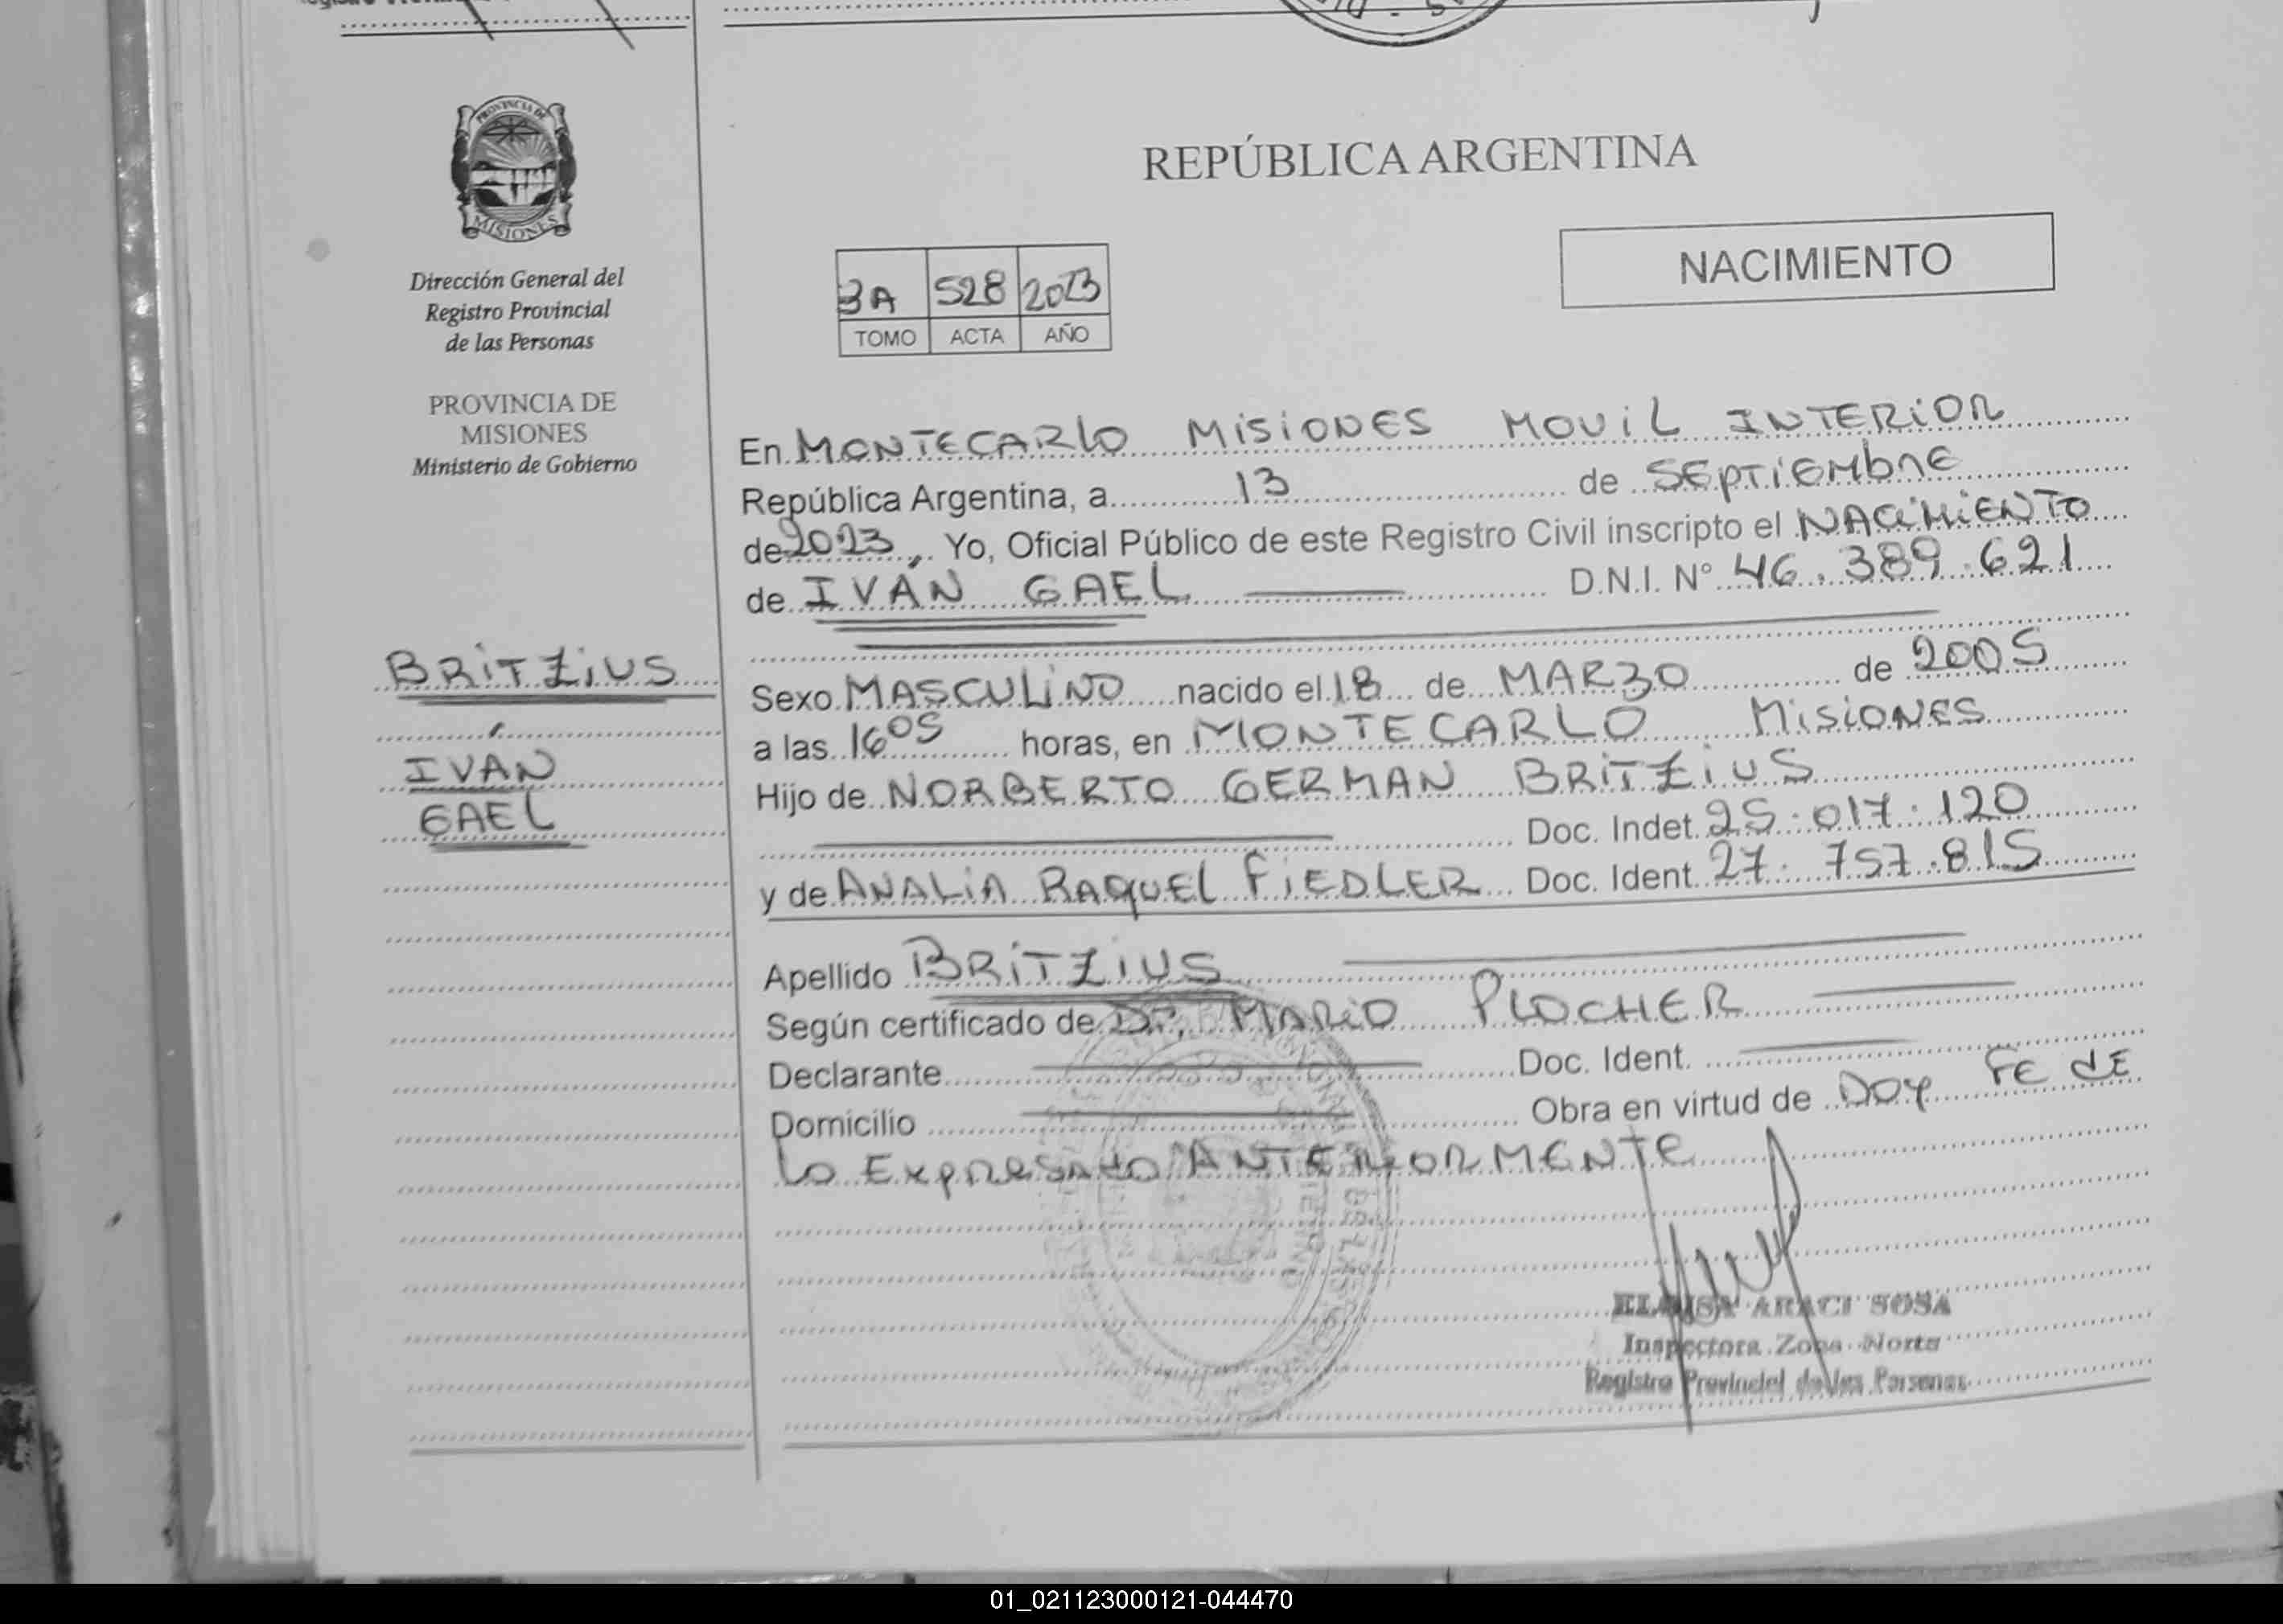 PROVINCIA DE
MISIONES
Dirección General del
Registro Provincial
de las Personas
PROVINCIA DE
MISIONES
Ministerio de Gobierno
BRITZIUS
IVÁN
GAEL
REPÚBLICA ARGENTINA
NACIMIENTO
3A 528 2023
TOMO ACTA AÑO
En MONTECARLO MISIONES MOVIL INTERIOR
República Argentina, a 13 de SEPTIEMBRE
de 2023, Yo, Oficial Público de este Registro Civil inscripto el NACIMIENTO
de IVÁN GAEL D.N.I. N° 46.389.621
Sexo MASCULINO nacido el 18 de MARZO de 2005
a las 16 05 horas, en MONTECARLO MISIONES
Hijo de NORBERTO GERMAN BRITZIUS
Doc. Indet. 25.017.120
y de ANALIA RAQUEL FIEDLER Doc. Ident. 27.757.815
Apellido BRITZIUS
Según certificado de Dr. MARIO PLOCHER
Declarante Doc. Ident.
Domicilio Obra en virtud de DOY FE DE
LO EXPRESADO ANTERIORMENTE
ARACI SOSA
Inspectora Zona Norte
Registro Provincial de las Personas
01_021123000121-044470